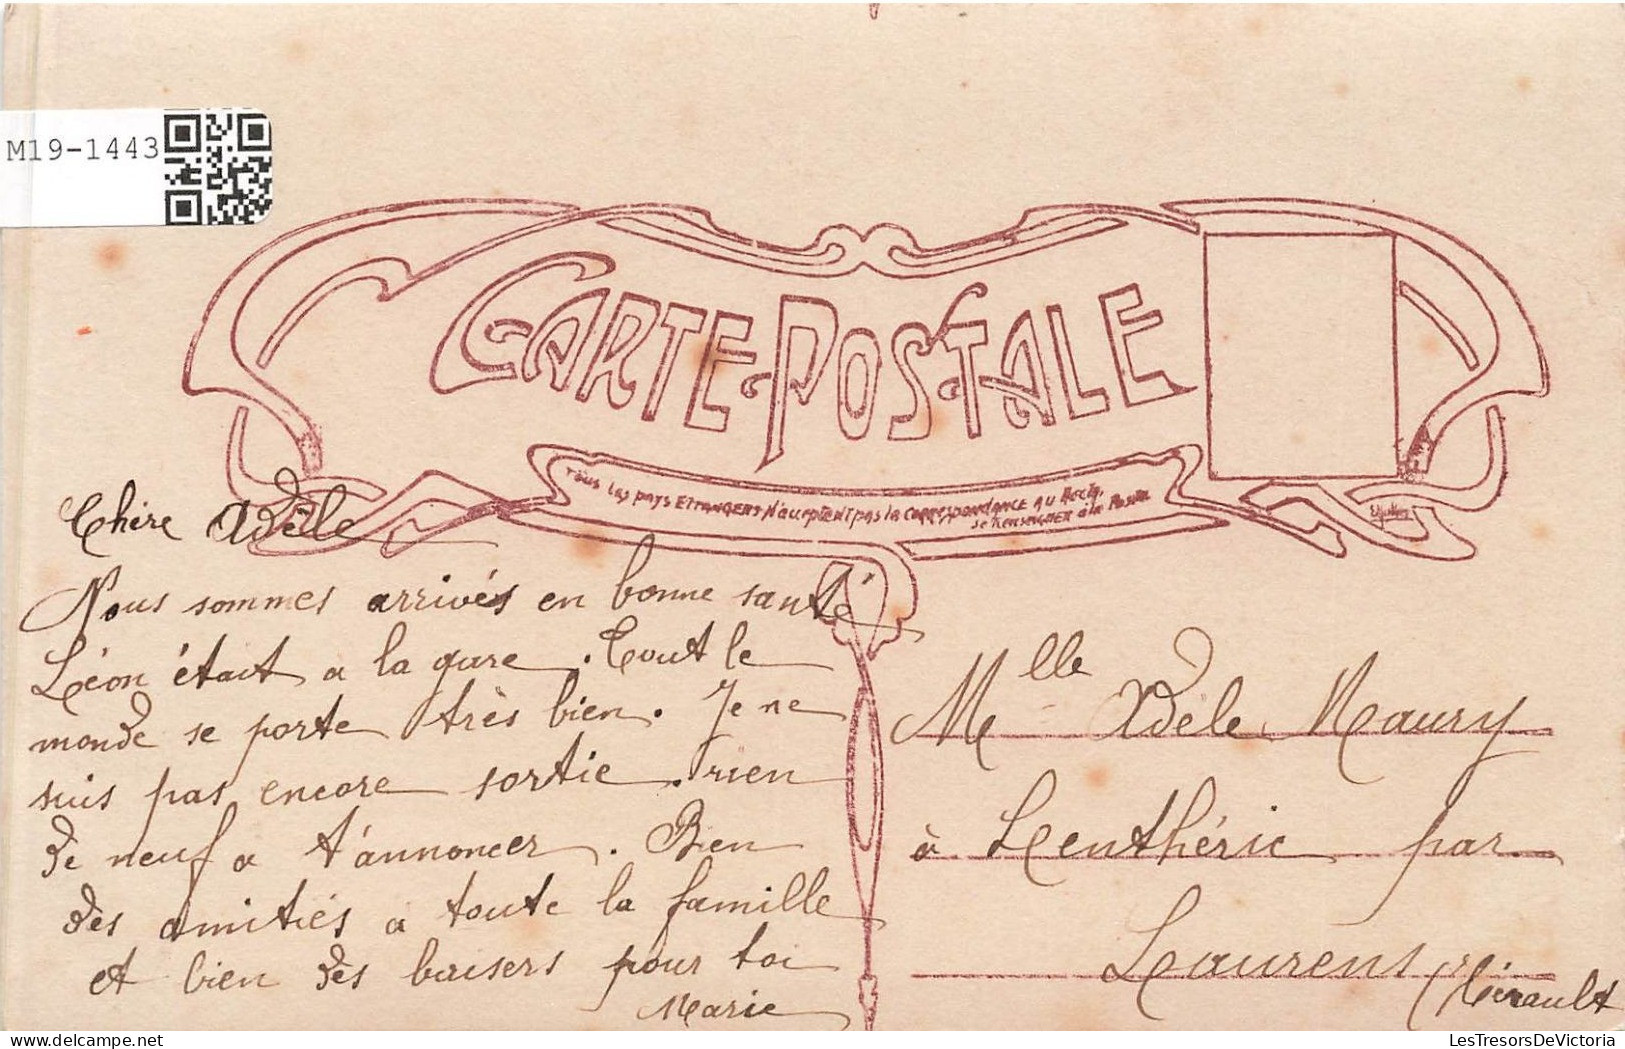 M19-1443
CARTE POSTALE
Tous les pays Etrangers n'acceptent pas la Correspondance au Recto,
se renseigner à la Poste
Chère Adèle
Nous sommes arrivés en bonne santé
Léon était a la gare. Tout le
monde se porte très bien. Je ne
suis pas encore sortie. rien
de neuf a t'annoncer. Bien
dès amitiés a toute la famille
et bien des baisers pour toi
Marie
Mlle Adèle Maury
à Lenthéric par
Laurens (Hérault
LesTresorsDeVictoria